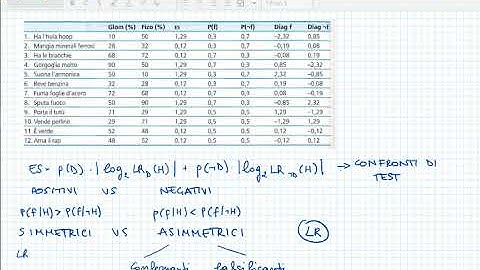 Glom (%) Fizo (%) ES P(f) P(¬f) Diag f Diag ¬f
1. Ha l'hula hoop 10 50 1,29 0,3 0,7 −2,32 0,85
2. Mangia minerali ferrosi 28 32 0,12 0,3 0,7 −0,19 0,08
3. Ha le branchie 68 72 0,12 0,7 0,3 −0,08 0,19
4. Gorgoglia molto 90 50 1,29 0,7 0,3 0,85 −2,32
5. Suona l'armonica 50 10 1,29 0,3 0,7 2,32 −0,85
6. Beve benzina 32 28 0,12 0,3 0,7 0,19 −0,08
7. Fuma foglie d'acero 72 68 0,12 0,7 0,3 0,08 −0,19
8. Sputa fuoco 50 90 1,29 0,7 0,3 −0,85 2,32
9. Porta il tutù 71 29 1,29 0,5 0,5 1,29 −1,29
10. Vende perline 29 71 1,29 0,5 0,5 −1,29 1,29
11. È verde 52 48 0,12 0,5 0,5 0,12 −0,12
12. Ama il rap 48 52 0,12 0,5 0,5 −0,12 0,12
ES = P(D) · |log₂ LR_D(H)| + P(¬D) |log₂ LR_¬D(H)| → CONFRONTI DI
TEST
POSITIVI VS NEGATIVI
P(f|H) > P(f|¬H) P(f|H) < P(f|¬H)
SIMMETRICI VS ASIMMETRICI LR
LR
Confermanti falsificanti